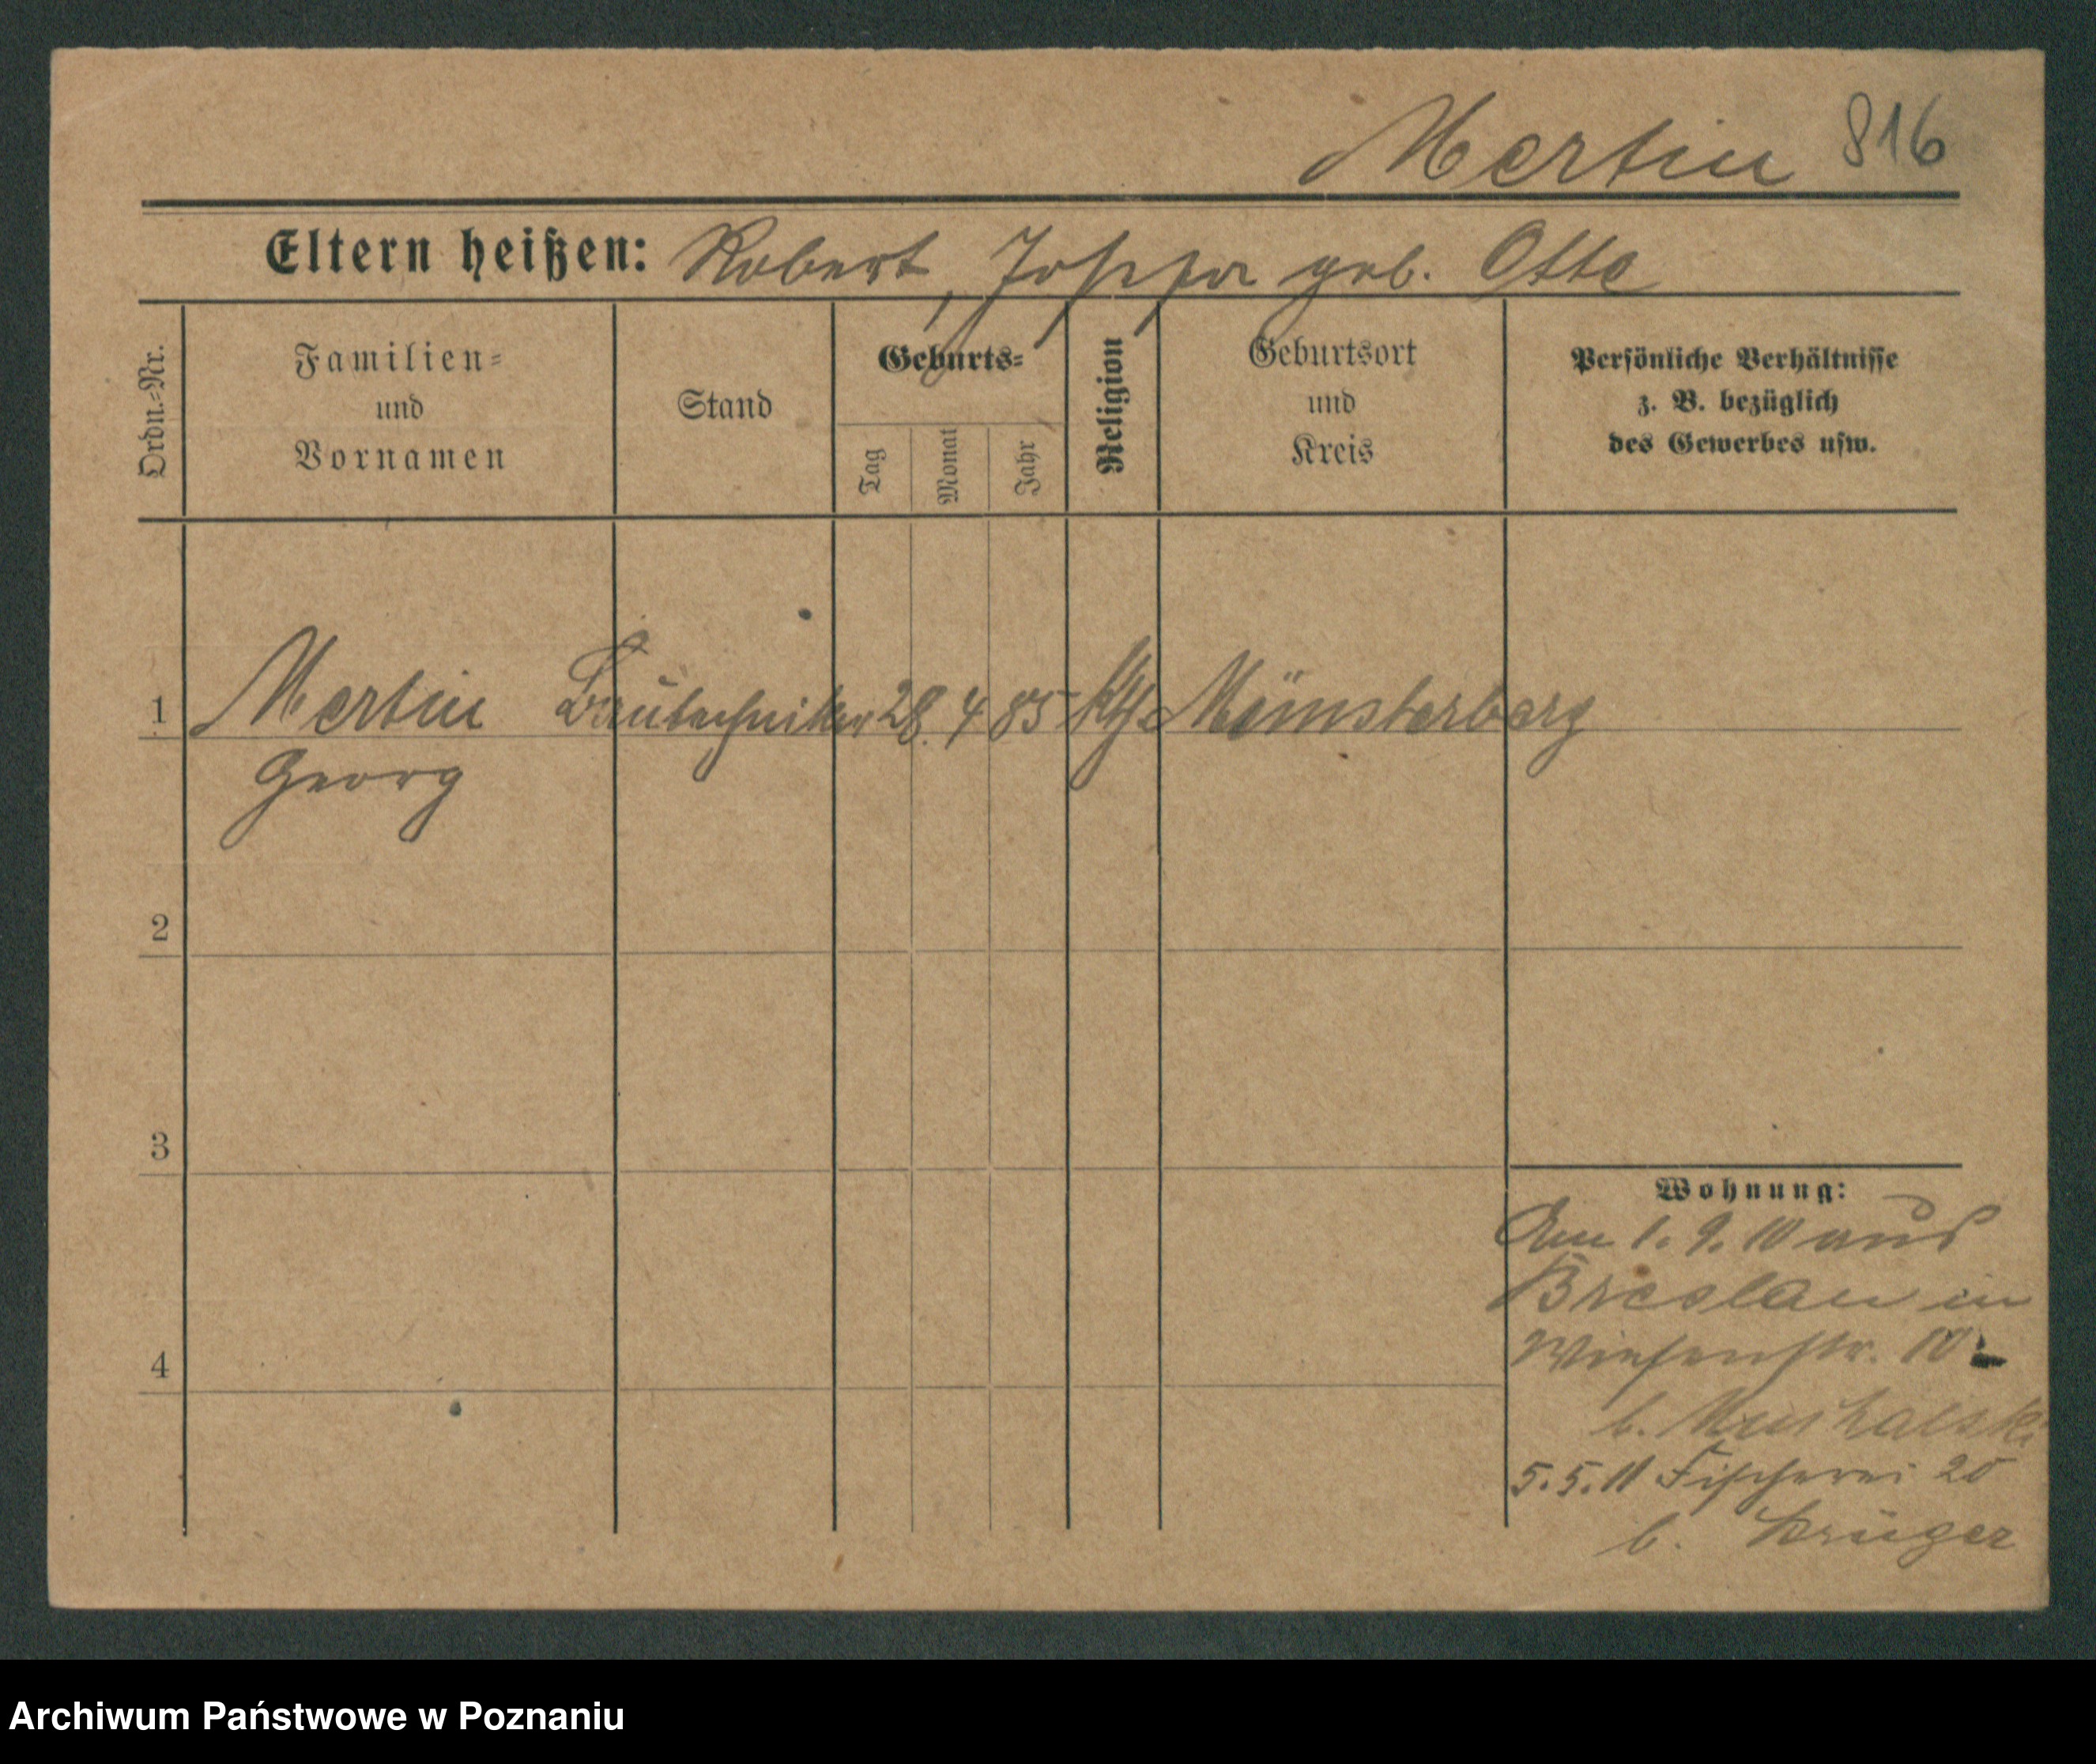 Mertin 816
Eltern heißen: Robert, Josefa geb. Otte
Ordn.-Nr.
Familien-
und
Vornamen
Stand
Geburts-
Tag
Monat
Jahr
Religion
Geburtsort
und
Kreis
Persönliche Verhältnisse
z. B. bezüglich
des Gewerbes usw.
1 Mertin Bautechniker 28. 4 85 kth Münsterberg
Georg
2
3
4
Wohnung:
Am 1. 9. 10 aus
Breslau in
Wiesenstr. 10
b.
5. 5. 11 Fischerei 20
b. Krüger
Archiwum Państwowe w Poznaniu